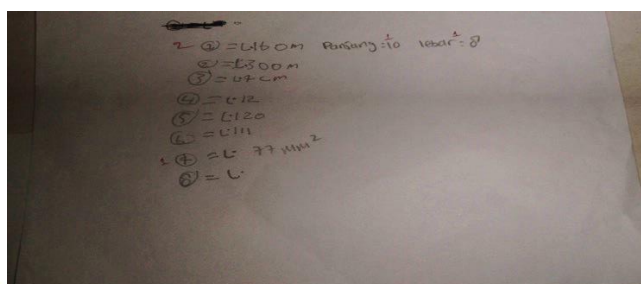 2 ① = L:160m Panjang:10 lebar:8
② = L:300m
③ = L:7cm
④ = L:12
⑤ = L:120
⑥ = L:111
1 ⑦ = L: 77 mm²
⑧ = L: